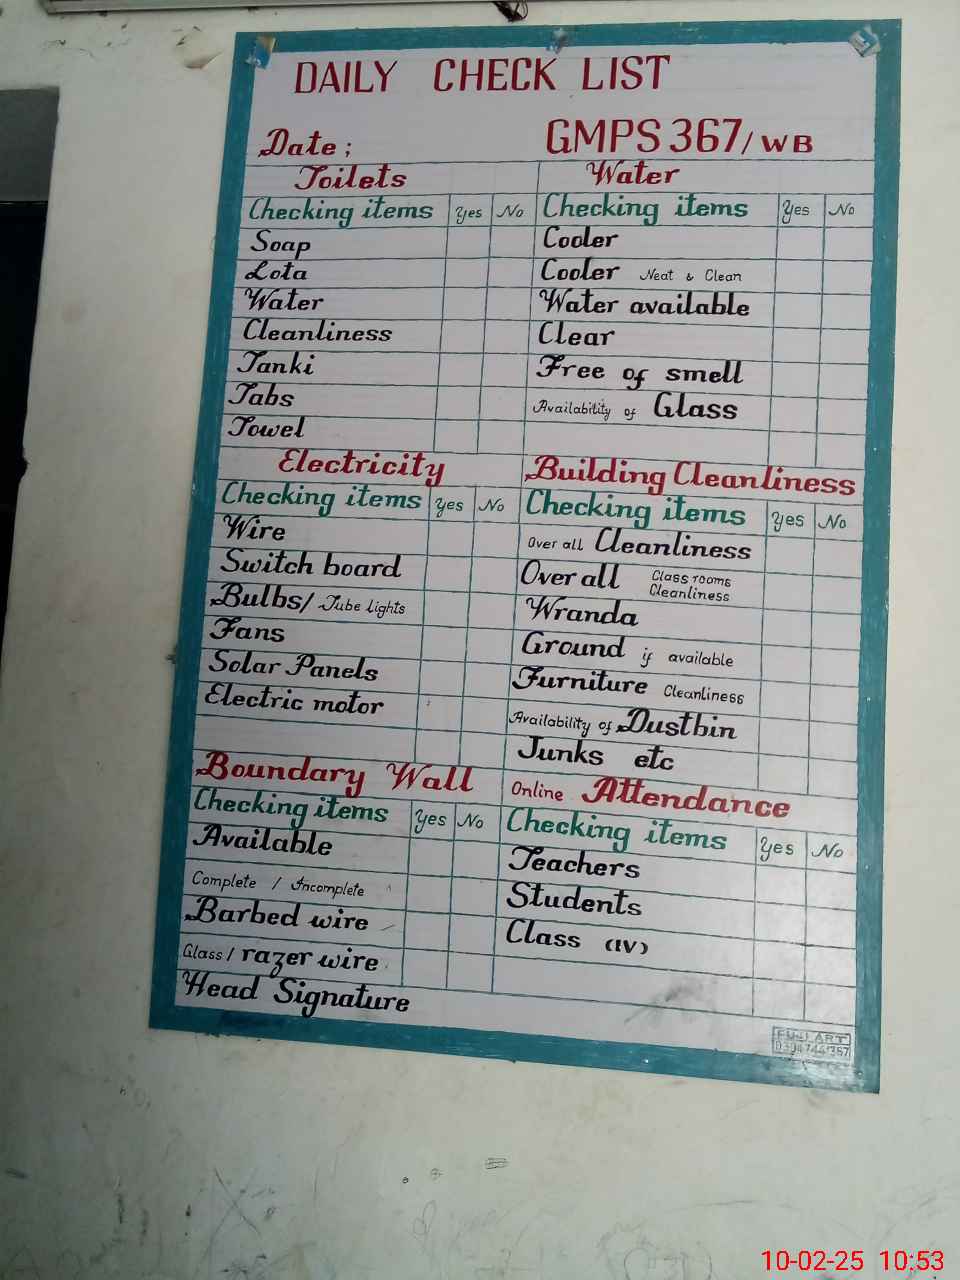 DAILY CHECK LIST
Date ;
GMPS 367/WB
Toilets
Checking items Yes No
Soap
Lota
Water
Cleanliness
Tanki
Tabs
Towel
Water
Checking items Yes No
Cooler
Cooler Neat & Clean
Water available
Clear
Free of smell
Availability of Glass
Electricity
Checking items Yes No
Wire
Switch board
Bulbs/ Tube Lights
Fans
Solar Panels
Electric motor
Building Cleanliness
Checking items Yes No
Over all Cleanliness
Over all Class rooms
Cleanliness
Wranda
Ground if available
Furniture Cleanliness
Availability of Dustbin
Junks etc
Boundary Wall
Checking items Yes No
Available
Complete / Incomplete
Barbed wire
Glass / razer wire
Online Attendance
Checking items Yes No
Teachers
Students
Class (IV)
Head Signature
ART
10-02-25 10:53